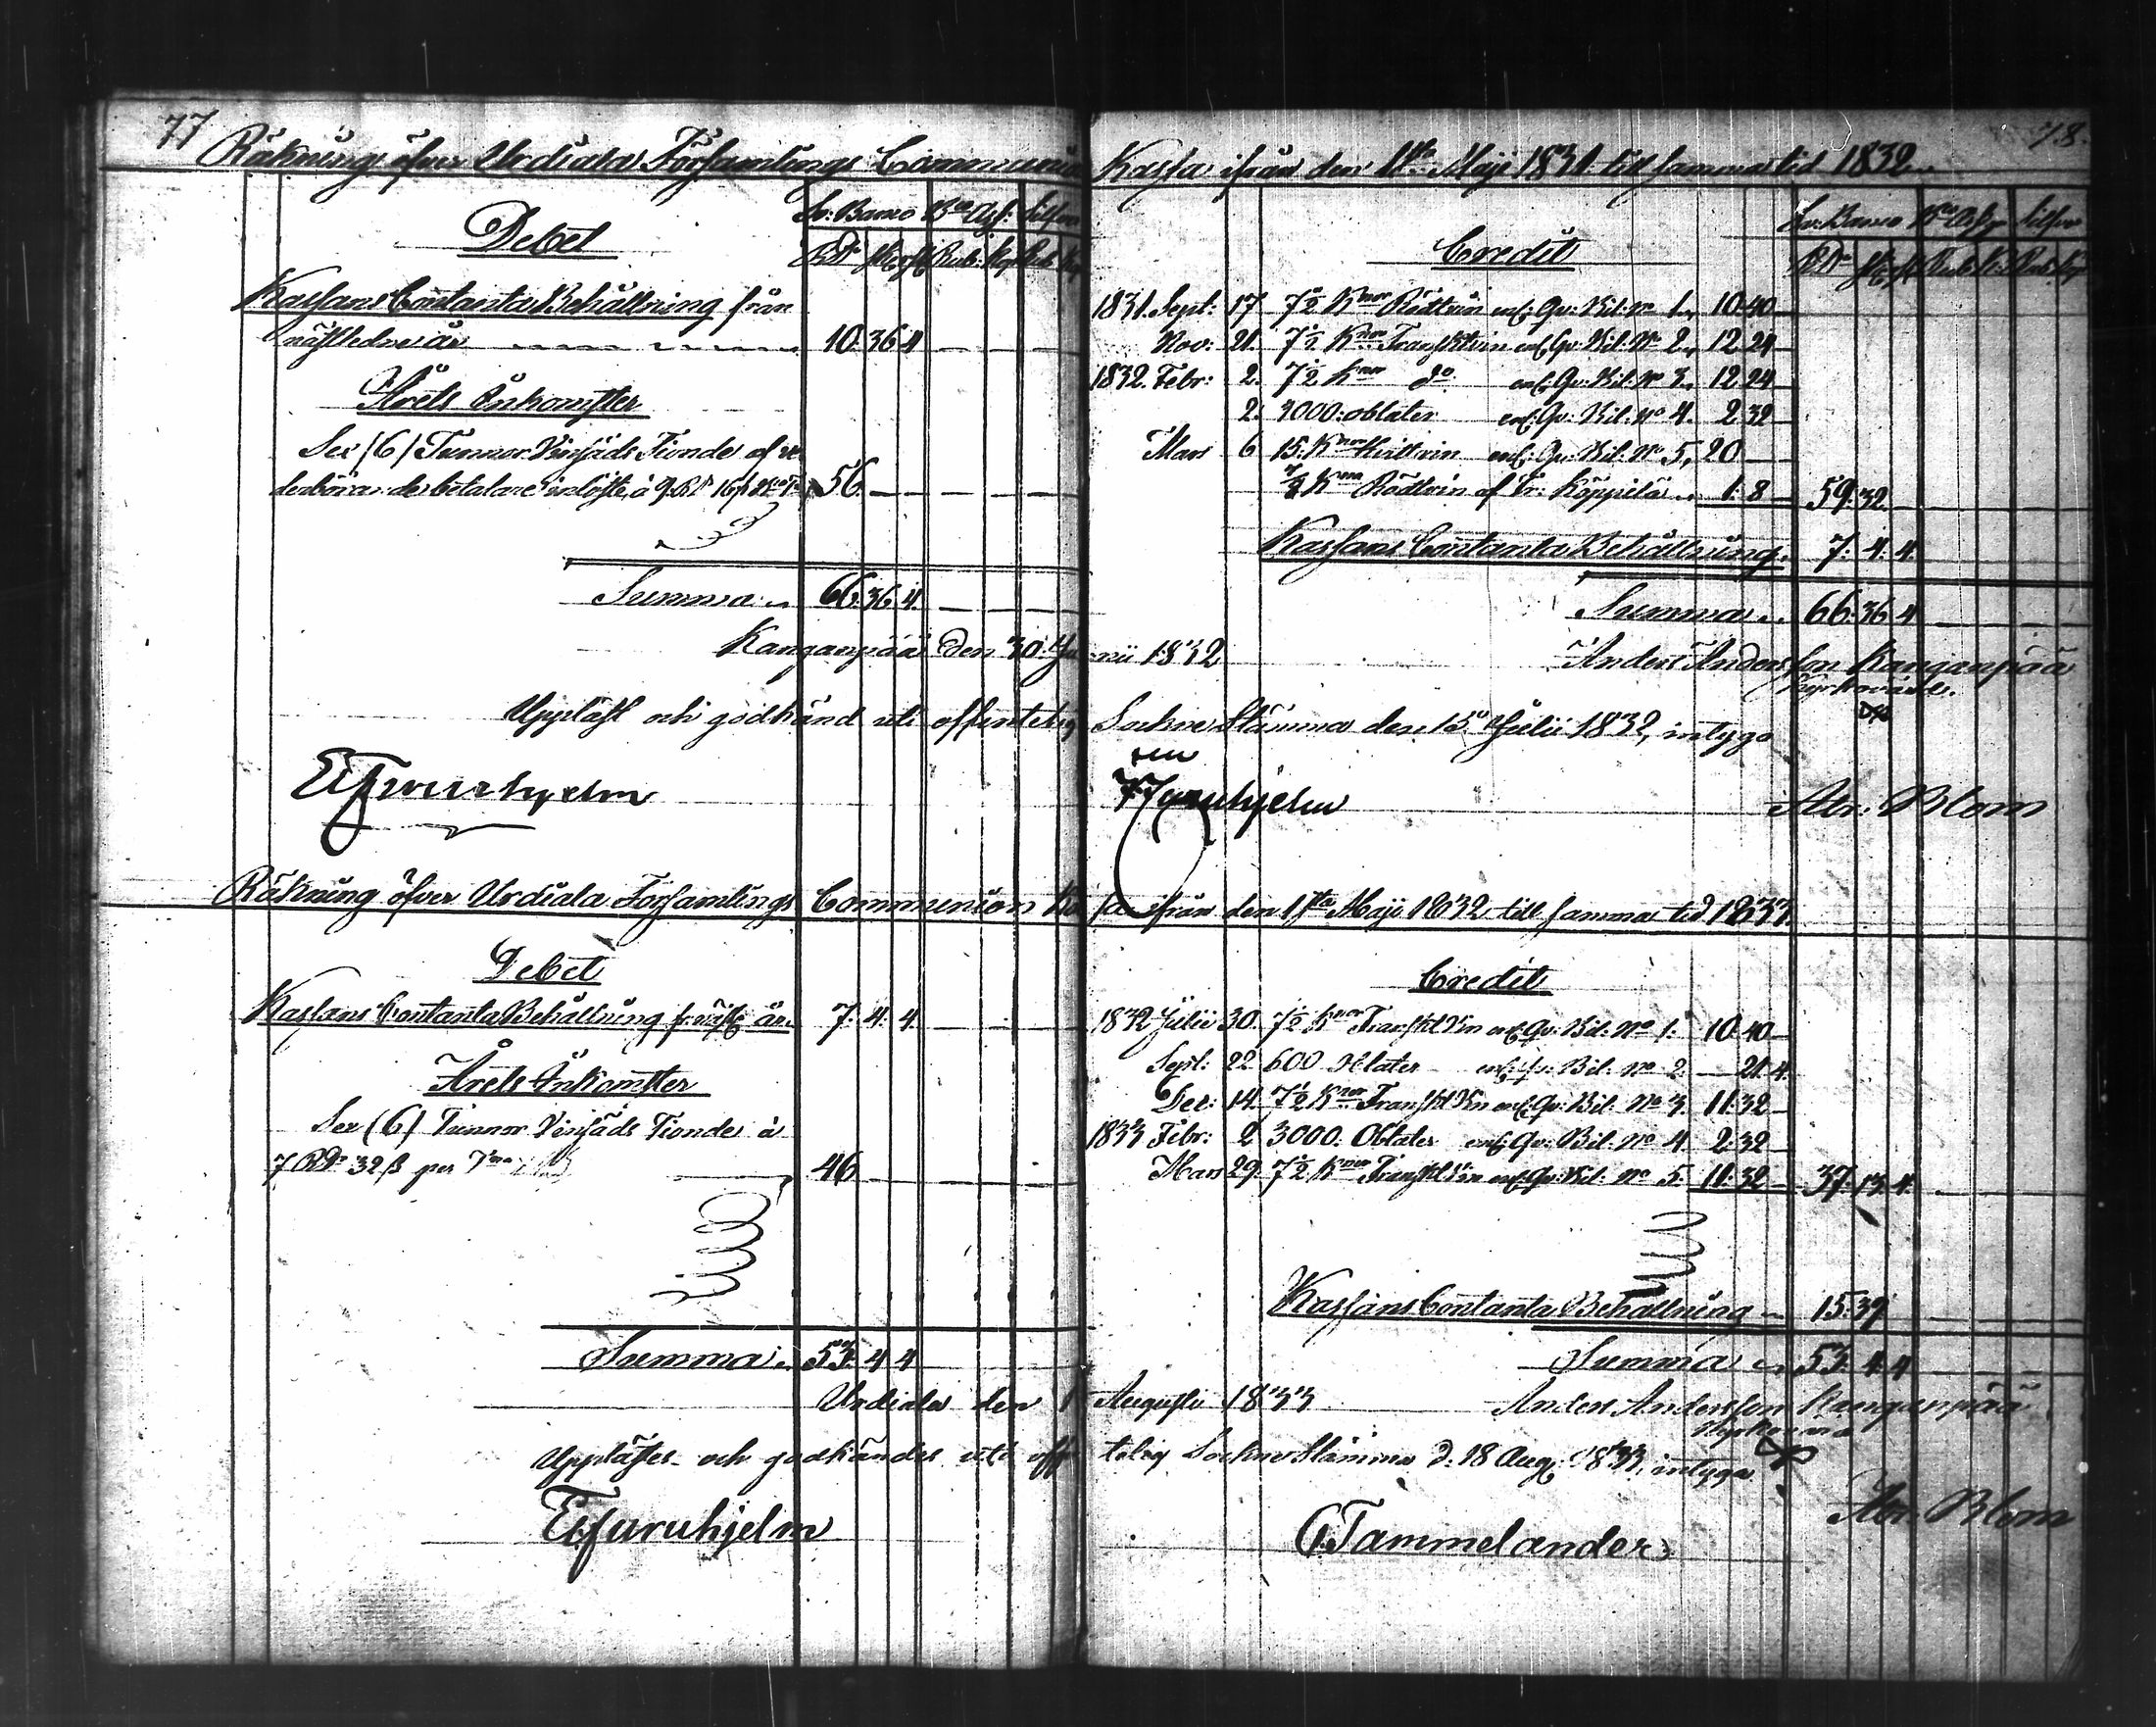 77
78.
Räkning öfver Urdiala Församlings Communion Kassa ifrån den 1sta Maji 1831 till samma tid 1832.
Debet
Sv: Banco Bco Ass: Silfver
RDr sk rst Rub. Kop Rub Kop
Kassans Contanta Behållning från
nästledne år 10. 36 4
Årets Inkomster
Sex (6) Tunnor Vinsäds Tionde af ve
derbörande betalare inlöste, à 9 RDr 16 sk 56. — —
Summa 66. 36 4.
Credit
Sv: Banco Bco Ass: Silfver
RDr sk rst Rub k: Rub kop
1831. Sept: 17. 7½ Knor Rödtvin enl: Qv: Bil: No 1. 10. 40 —
Nov: 21. 7½ Knor Franskt vin enl: Qv: Bil: No 2. 12. 24 —
1832. Febr: 2. 7½ Knor do enl: Qv: Bil: No 3. 12. 24 —
2. 3000. oblater enl: Qv: Bil: No 4. 2. 32 —
Mars 6 15. Knor Hvittvin enl: Qv: Bil: No 5. 20 —
Kna Rödtvin af Köppilä 1: 8 — 59: 32.
Kassans Contanta Behållning. 7: 4. 4.
Summa 66. 36 4
Kanganpää den 30. Junii 1832
Anders Andersson Kanganpää
Kyrkovärd.
Uppläst och godkänd uti offentelig Sockne Stämma den 15. Julii 1832, intyga
E Furuhjelm
Furuhjelm
Abr: Blom
Räkning öfver Urdiala Församlings Communion Kassa ifrån den 1sta Maji 1832 till samma tid 1833.
Debet
Kassans Contanta Behållning fr: nästl: år. 7. 4. 4.
Årets Inkomster
Sex (6) Tunnor Vinsäds Tionde à
7 RDr 32 ß per Tna 46
Summa 53. 4 4
Credit
1832 Julii 30. 7½ Knor Franskt Vin enl: Qv: Bil: No 1. 10. 40 —
Sept: 22 600 Oblater enl: Qv: Bil: No 2. — 21. 4.
Dec: 14. 7½ Knor Franskt Vin enl: Qv: Bil: No 3. 11. 32 —
1833 Febr: 2 3000. Oblater enl: Qv: Bil: No 4. 2. 32 —
Mars 29. 7½ Knor Franskt Vin enl: Qv: Bil: No 5. 11. 32 — 37. 13. 4.
Kassans Contanta Behållning 15. 39
Summa 53. 4. 4
Urdiala den 1 Augusti 1833
Anders Andersson Kanganpää
Kyrkovärd
Upplästes och godkändes uti offentelig Sockne Stämma d. 18 Aug: 1833, intyga
E Furuhjelm
G Tammelander
Abr: Blom